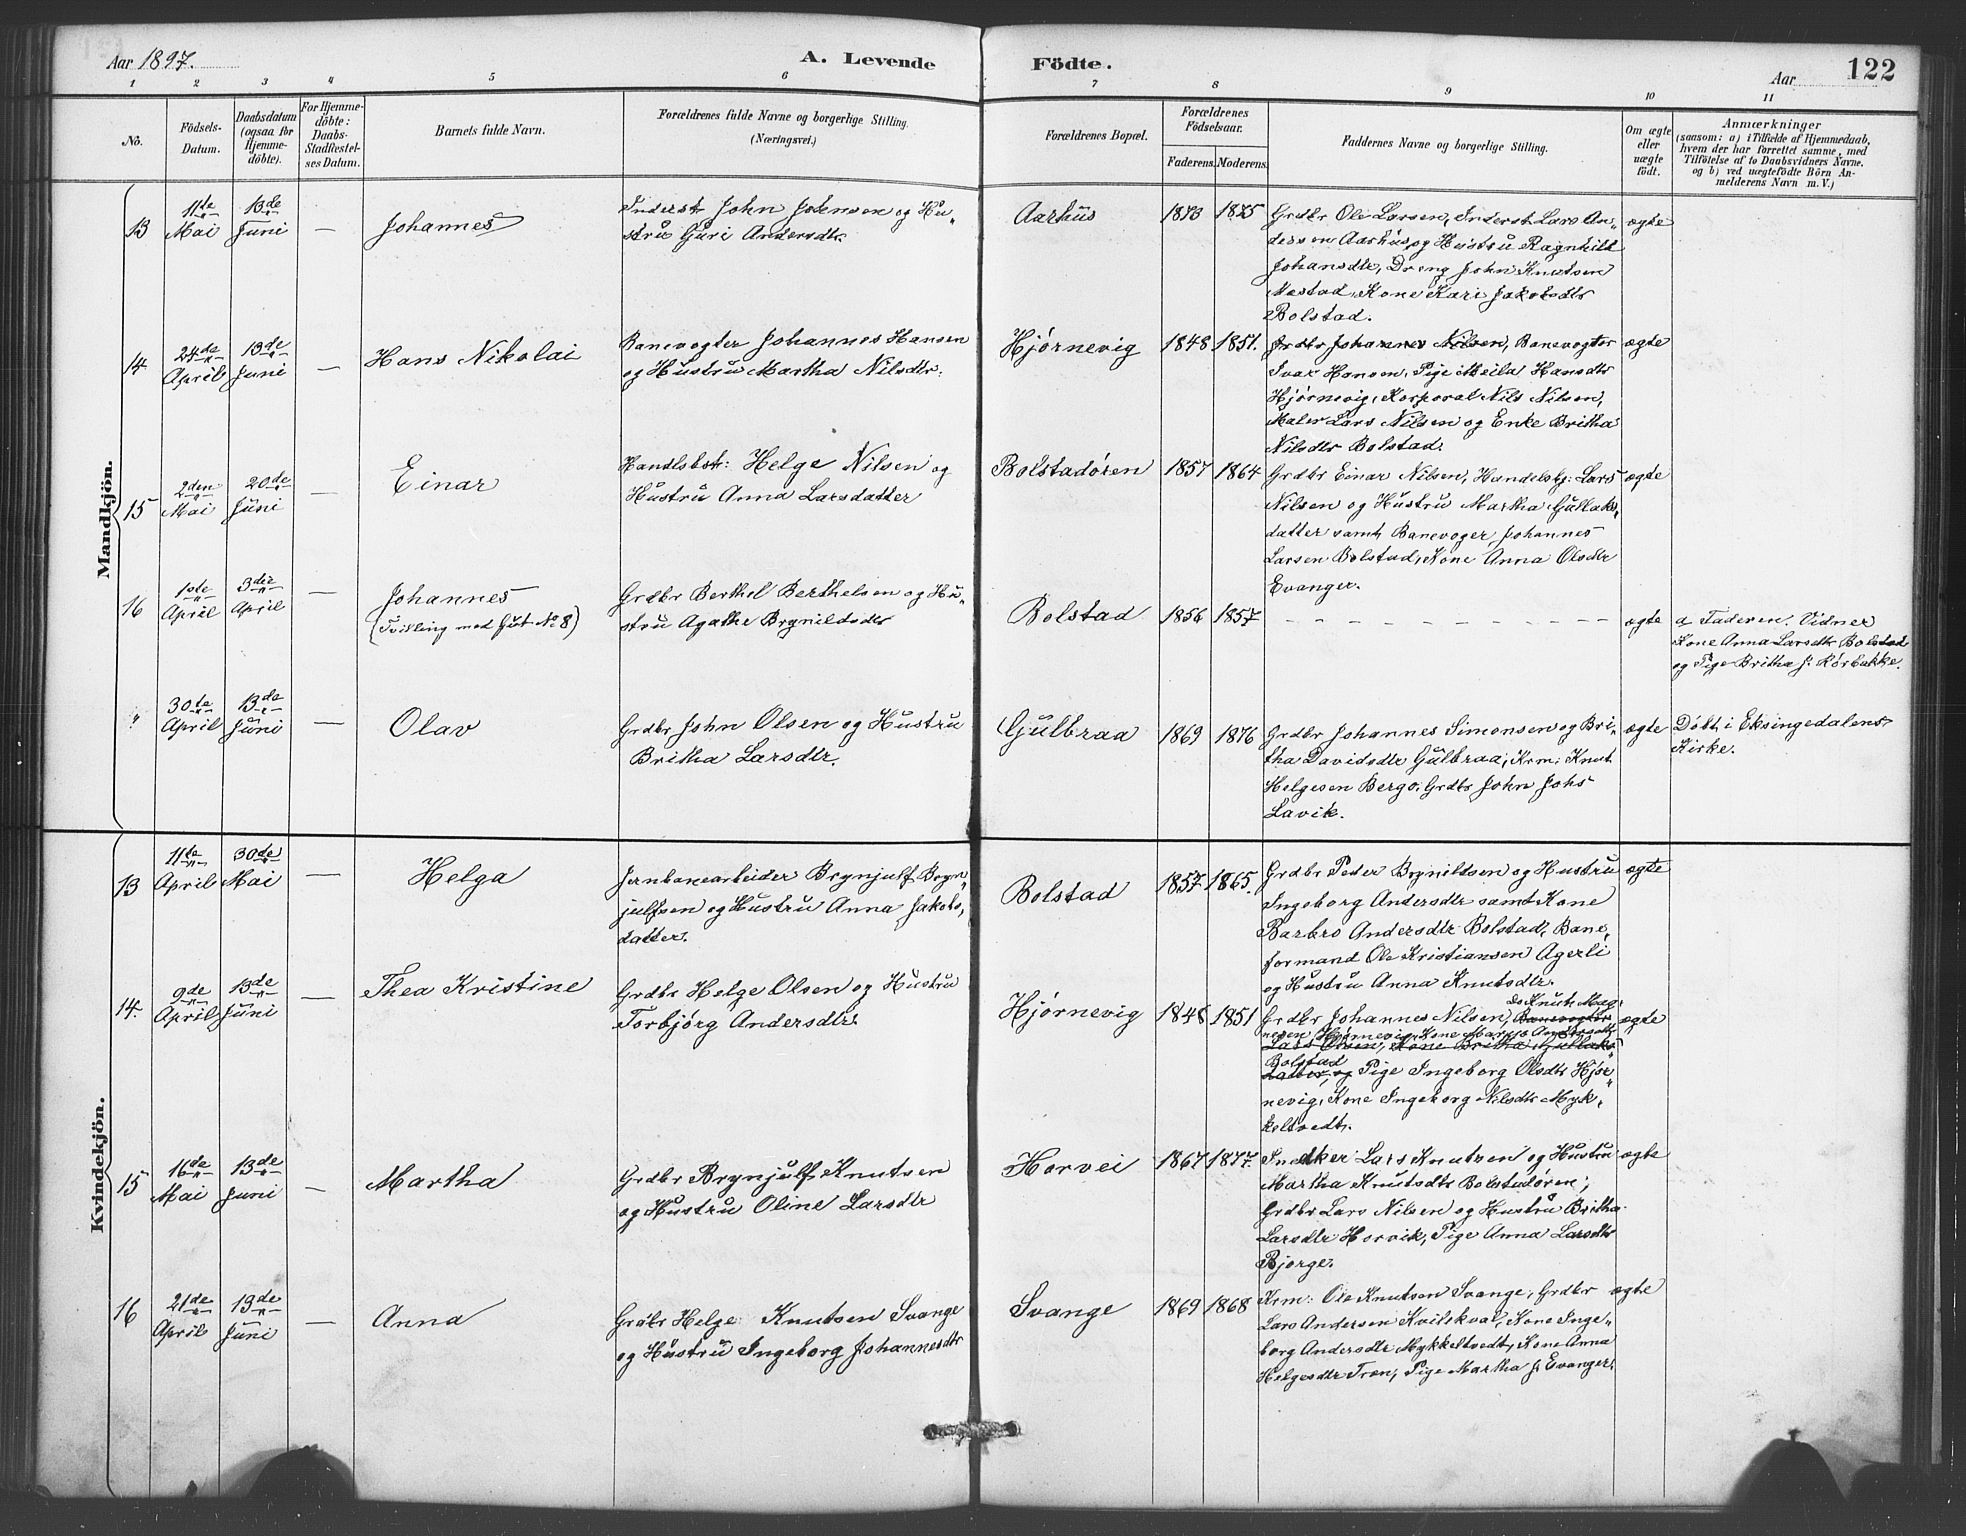 Aar 1897.
A. Levende Födte.
Aar
122
1 2 3 4 5 6 7 8 9 10 11
No.
Födsels-Datum.
Daabsdatum (ogsaa for Hjemme-döbte).
For Hjemme-döbte: Daabs-Stadfestel-ses Datum.
Barnets fulde Navn.
Forældrenes fulde Navne og borgerlige Stilling.
(Næringsvei.)
Forældrenes Bopæl.
Forældrenes Födselsaar.
Faderens. Moderens.
Faddernes Navne og borgerlige Stilling.
Om ægte eller uægte födt.
Anmærkninger
(saasom: a) i Tilfælde af Hjemmedaab,
hvem der har forrettet samme, med
Tilföielse af to Daabsvidners Navne,
og b) ved uægtefödte Börn An-
melderens Navn m. V.)
Mandkjön.
13 11te Mai 13de Juni — Johannes
Inderst John Johnsen og Hu-
stru Guri Andersdtr.
Aarhus 1873 1875
Grdbr Ole Larsen, Inderst Lars An-
dersen Aarhus og Hustru Ragnhild
Johansdtr, Dreng John Knutsen
Mestad, Kone Kari Jakobsdtr
Bolstad.
ægte
14 24de April 13de Juni — Hans Nikolai
Banevogter Johannes Hansen
og Hustru Martha Nilsdtr.
Hjørnevig 1848 1851.
Grdbr Johannes Nilsen, Banevogter
Ivar Hansen, Pige Meila Hansdtr
Hjørnevig, Korporal Nils Nilsen,
Maler Lars Nilsen og Enke Britha
Nilsdtr Bolstad.
ægte
15 2den Mai 20de Juni — Einar
Handlsbst: Helge Nilsen og
Hustru Anna Larsdatter
Bolstadøren 1857 1864
Grdbr Einar Nilsen, Handelsbj: Lars
Nilsen og Hustru Martha Gullaks-
datter samt Banevoger Johannes
Larsen Bolstad, Kone Anna Olsdtr
Evanger.
ægte
16 1ste April 3die April — Johannes
(Tvilling med Gut No 8)
Grdbr Berthel Berthelsen og Hu-
stru Agathe Brynildsdtr
Bolstad 1856 1857
- - - - - - - - - - - -
ægte
a Faderen. Vidner
Kone Anna Larsdtr Bolstad
og Pige Britha J. Rörbakke.
" 30te April 13de Juni — Olav
Grdbr John Olsen og Hustru
Britha Larsdtr.
Gulbraa 1869 1876
Grdbr Johannes Simonsen og Bri-
tha Davidsdtr Gulbraa, Krm: Knut
Helgesen Bergo, Grdbr John Johs
Lavik.
ægte
Döbt i Eksingedalens
Kirke.
Kvindekjön.
13 11te April 30de Mai — Helga
Jernbanearbeider Brynjulf Bryn-
julfsen og Hustru Anna Jakobs-
datter.
Bolstad 1857 1865.
Grdbr Peder Brynildsen og Hustru
Ingeborg Andersdtr samt Kone
Barbro Andersdtr Bolstad, Bane-
formand Ole Kristiansen Agerli
og Hustru Anna Knutsdtr.
ægte
14. 9de April 13de Juni — Thea Kristine
Grdbr Helge Olsen og Hustru
Torbjörg Andersdtr.
Hjørnevig 1848 1851
do Knut Mag-
Grdbr Johannes Nilsen, Banevogter
nesen, Hjørnevig, Kone Andersdtr
Lars Olsen, Kone Britha Gullaks-
Bolstad
datter, og Pige Ingeborg Olsdtr Hjør-
nevig, Kone Ingeborg Nilsdtr Myk-
keltvedt.
ægte
15 16de Mai 13de Juni — Martha
Grdbr Brynjulf Knutsen
og Hustru Oline Larsdtr
Horvei 1867 1877.
Snedker Lars Knutsen og Hustru
Martha Knutsdtr Bolstadøren,
Grdbr Lars Nilsen og Hustru Britha
Larsdtr Horvik, Pige Anna Larsdtr
Bjørge.
ægte
16 21de April 19de Juni — Anna
Grdbr Helge Knutsen Svange
og Hustru Ingeborg Johannesdtr
Svange 1869 1868
Krm: Ole Knutsen Svange, Grdbr
Lars Andersen Kvilekval, Kone Inge-
borg Andersdtr Mykkeltvedt, Kone Anna
Helgesdtr Træn, Pige Martha J. Evanger.
ægte